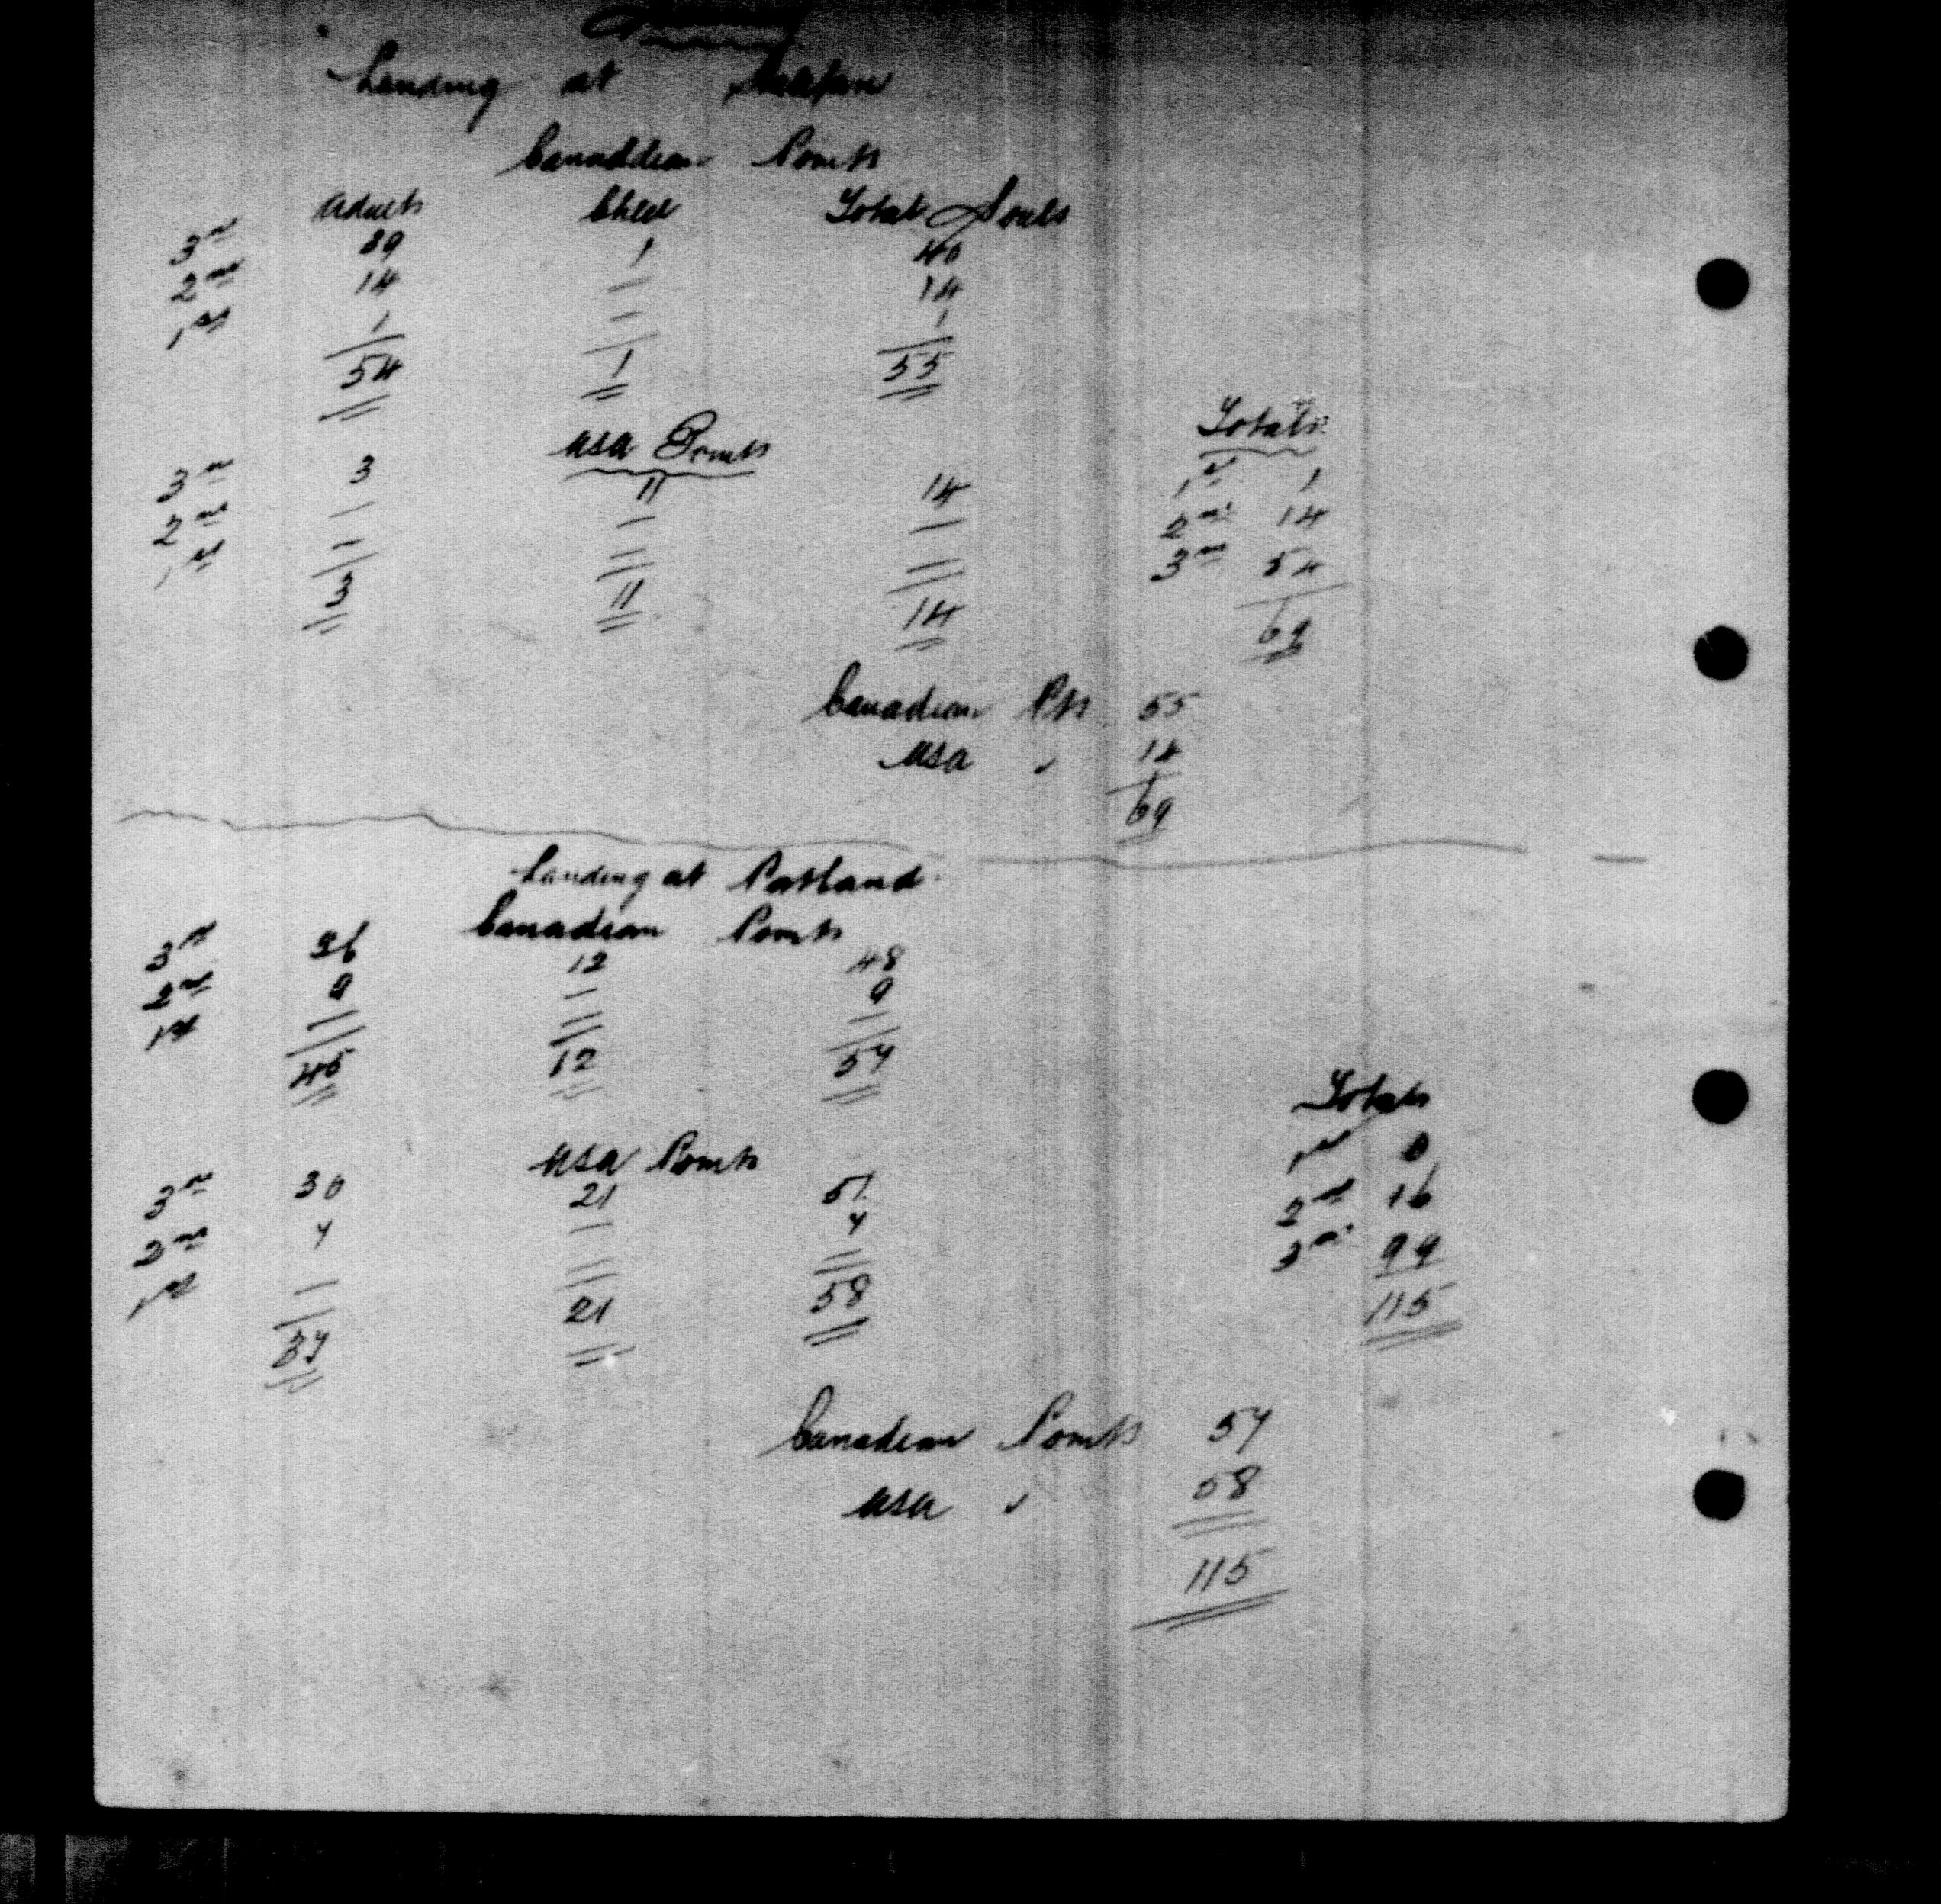 Landing at Halifax
Canaddian Points
Adults Child Total Souls
3rd 39 1 40
2nd 14 — 14
1st 1 — 1
54 1 55
USA Points
3rd 3 11 14
2nd — — —
1st — — —
3 11 14
Totals
1st 1
2nd 14
3rd 54
69
Canadian Pts 55
USA " 14
69
Landing at Portland
Canadian Points
3rd 36 12 48
2nd 9 — 9
1st — — —
45 12 57
USA Points
3rd 30 21 51
2nd 7 — 7
1st — — —
37 21 58
Totals
1st 0
2nd 16
3rd 99
115
Canadian Points 57
USA " 58
115